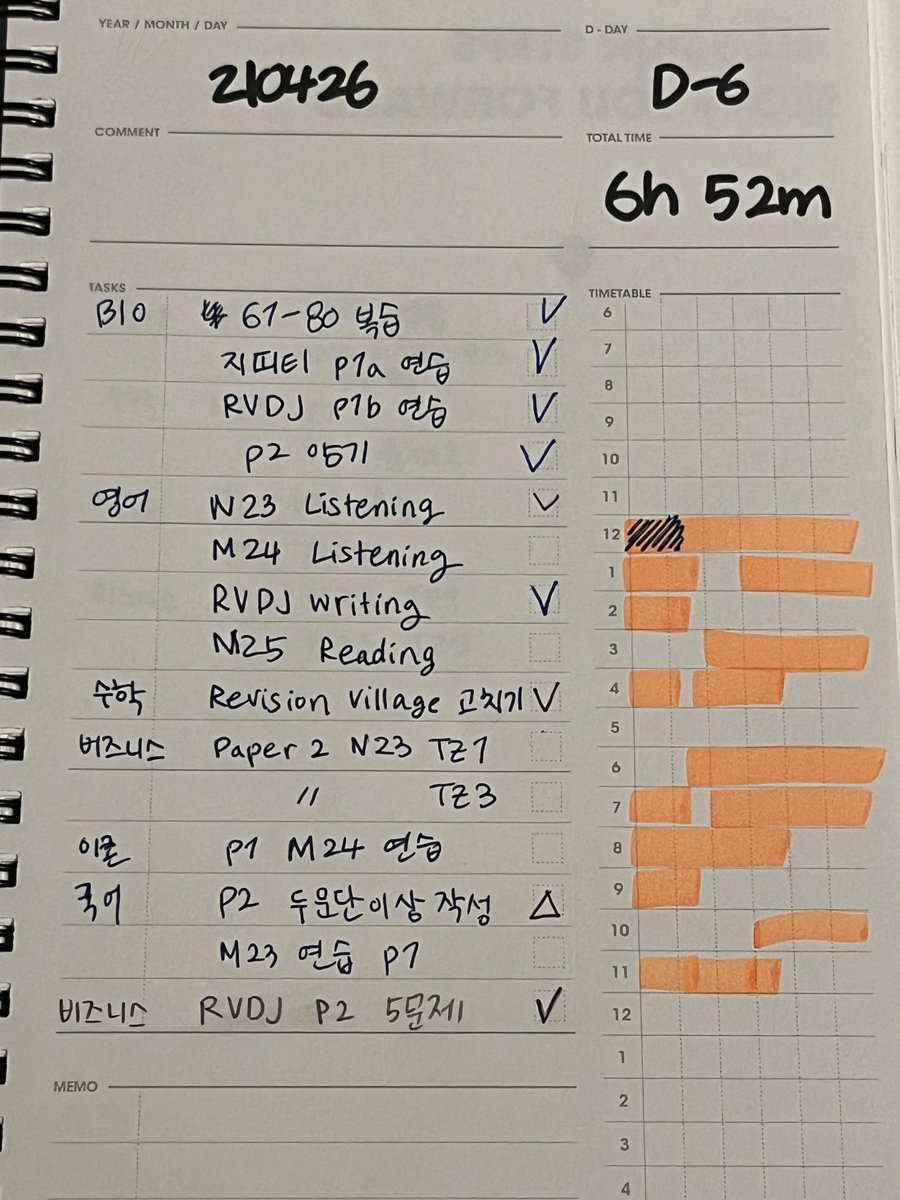 YEAR / MONTH / DAY
D - DAY
210426
D-6
COMMENT
TOTAL TIME
6h 52m
TASKS
TIMETABLE
BIO 61-80 복습
지피티 P1a 연습
RVDJ P1b 연습
P2 암기
영어 N23 Listening
M24 Listening
RVDJ writing
M25 Reading
수학 Revision Village 고치기
버즈니스 Paper 2 N23 TZ1
〃 TZ3
이콘 P1 M24 연습
국어 P2 두문단이상 작성
M23 연습 P1
비즈니스 RVDJ P2 5문제
6
7
8
9
10
11
12
1
2
3
4
5
6
7
8
9
10
11
12
1
2
3
4
MEMO